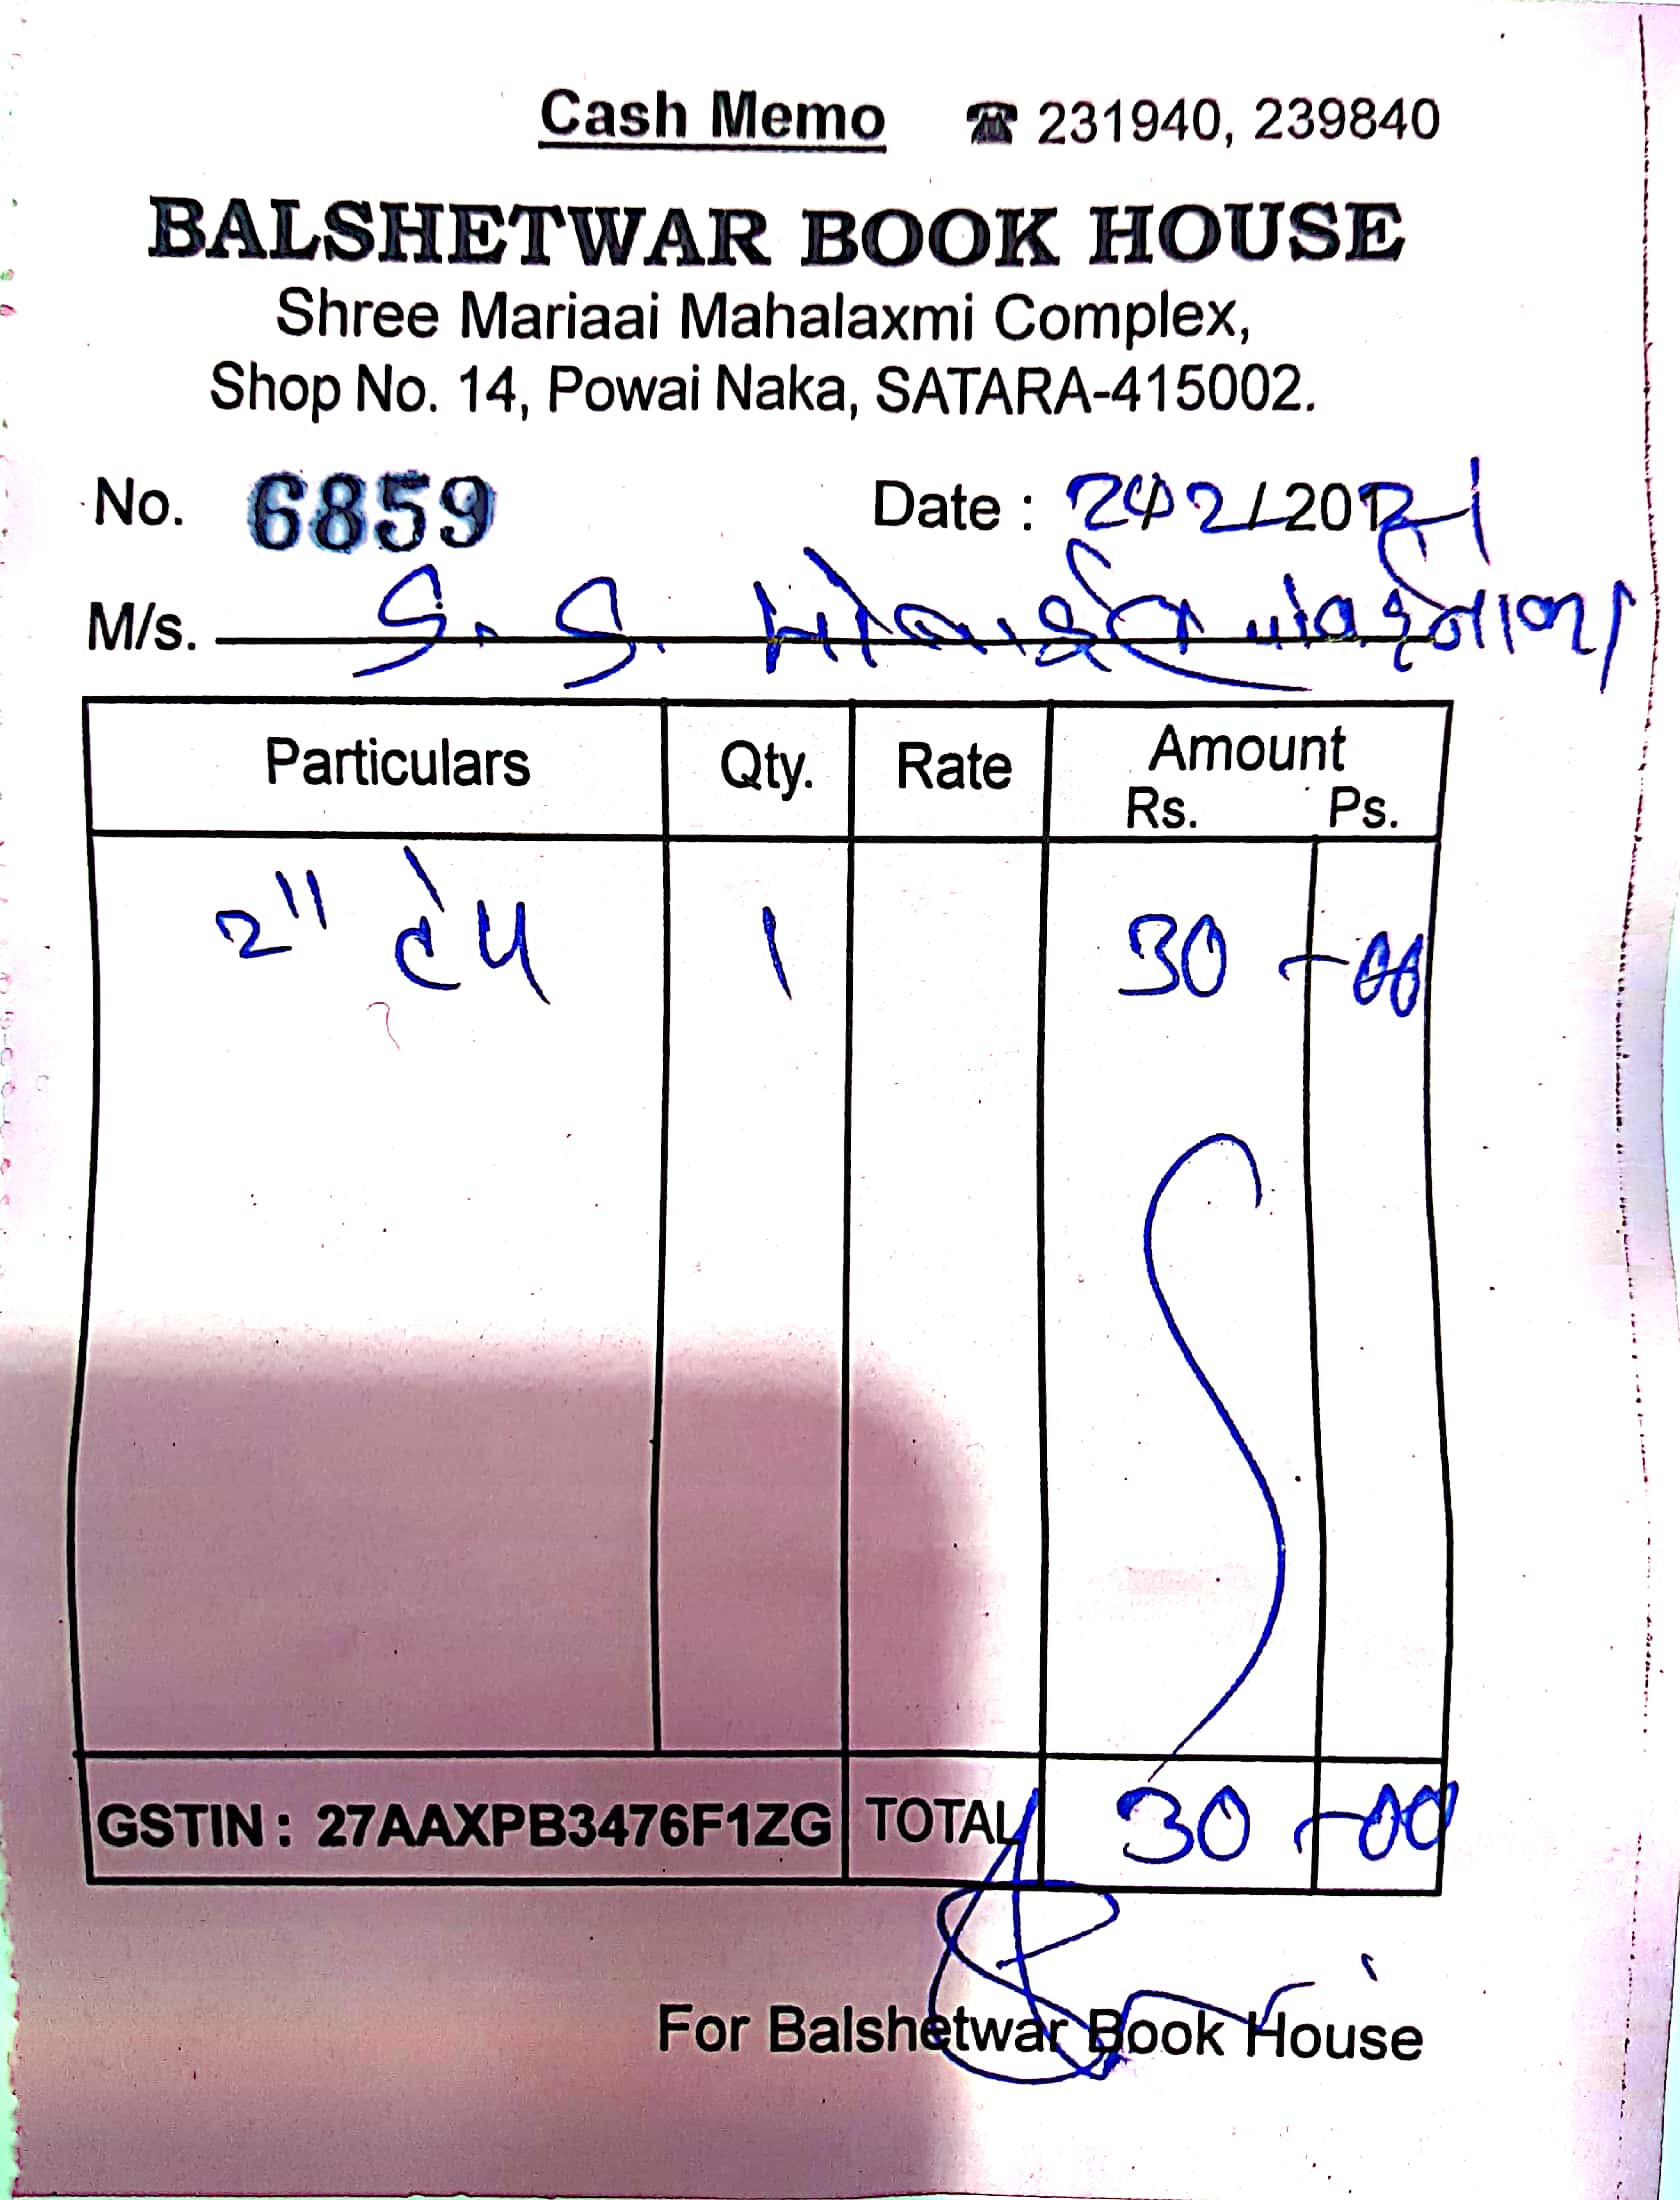 Cash Memo ☎ 231940, 239840
BALSHETWAR BOOK HOUSE
Shree Mariaai Mahalaxmi Complex,
Shop No. 14, Powai Naka, SATARA-415002.
No. 6859 Date : /20
M/s.
Particulars Qty. Rate Amount
Rs. Ps.
2" टेप 1 30 -00
GSTIN : 27AAXPB3476F1ZG TOTAL 30 -00
For Balshetwar Book House